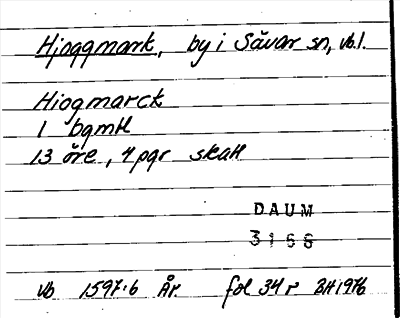 Hjoggmark, by i Sävar sn, vb.l.
Hiogmarck
1 bgmtl
13 öre, 4 pgr skatt
DAUM
3166
Vb 1597:6 År. fol 34 r BH 1976